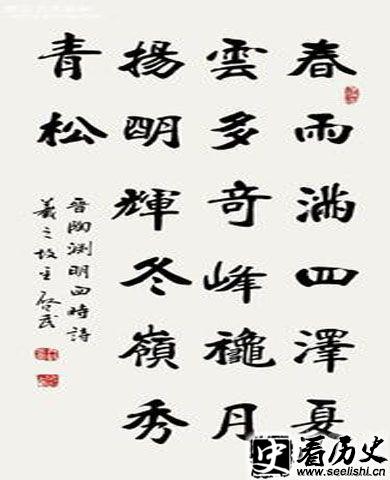 春雨滿四澤夏
雲多奇峰穐月
揚明輝冬嶺秀
青松
晉陶渊明四時詩
羲之故
史看历史
www.seelishi.cn